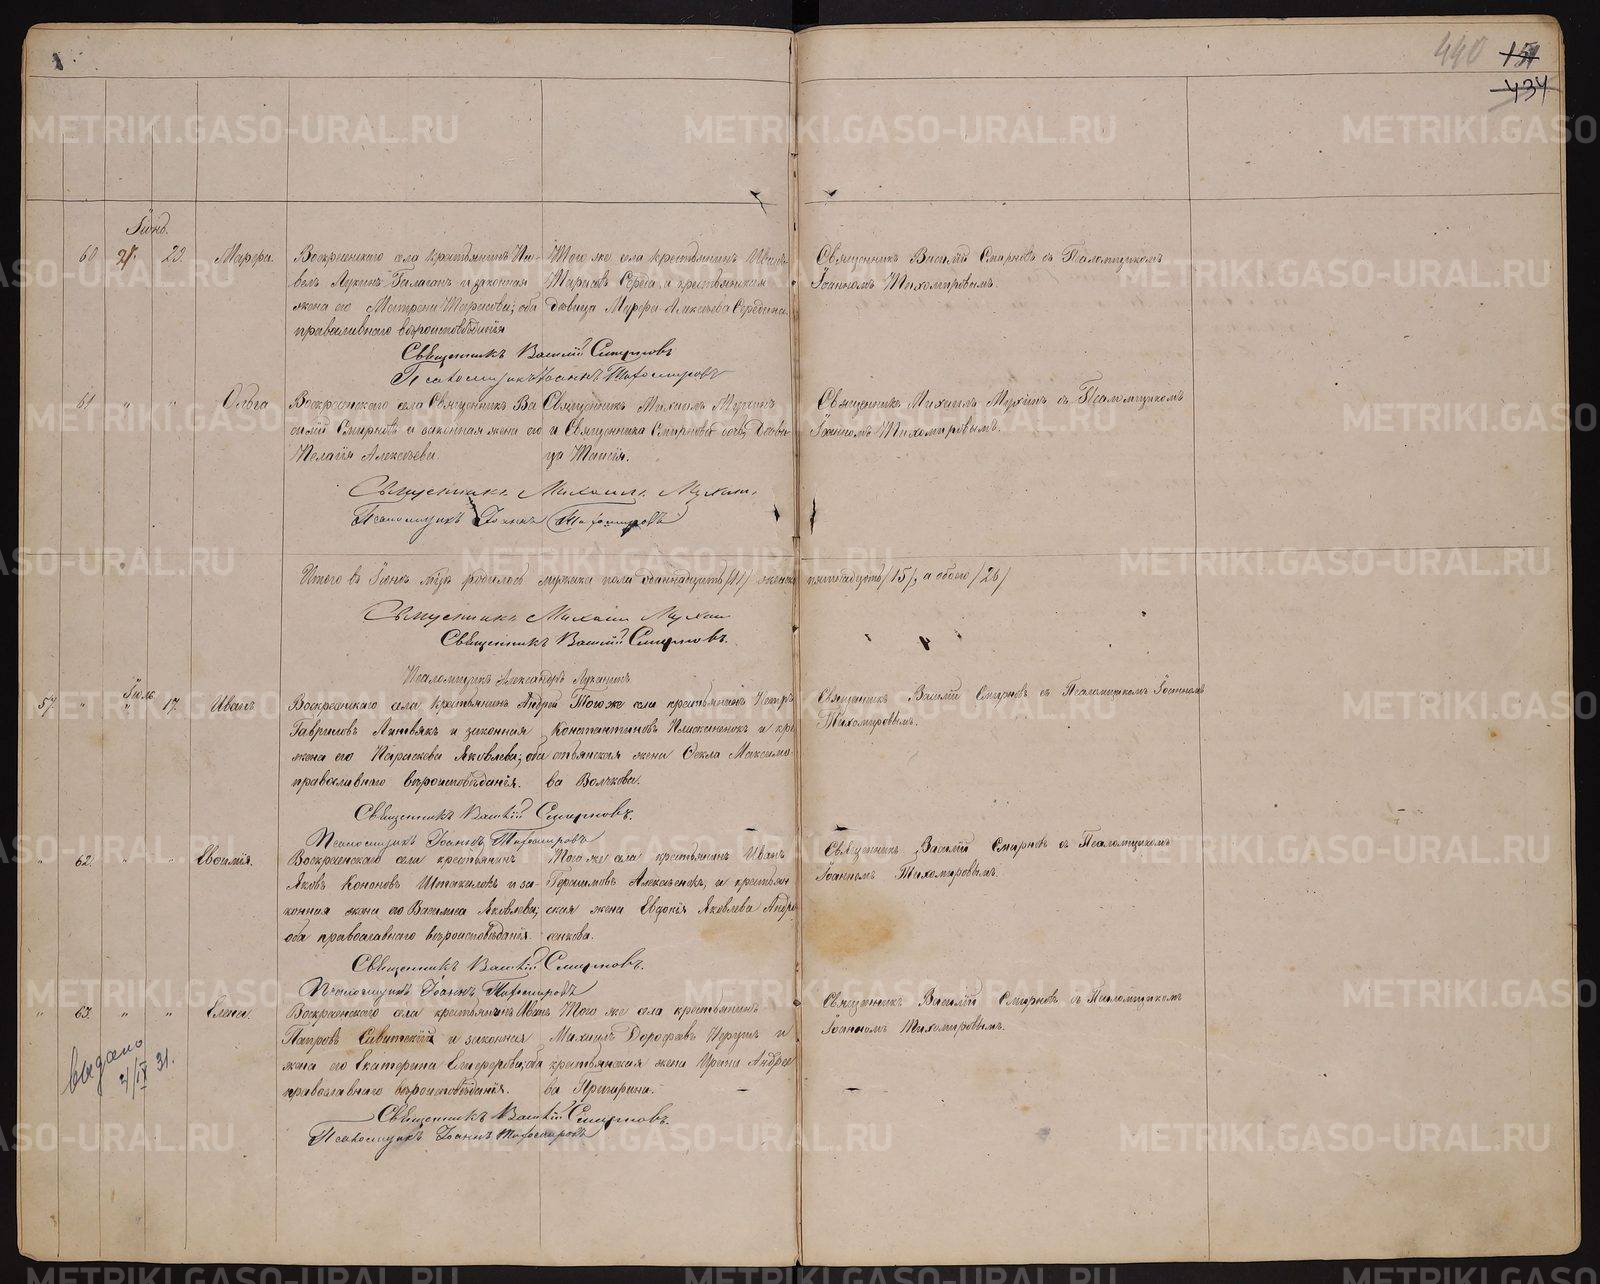 440 151
434
Іюнь.
60 21. 23. Марѳа.
Воскресенскаго села крестьянинъ Па-
велъ Лукинъ Галаганъ и законная
жена его Матрена Тарасова; оба
православнаго вѣроисповѣданія
Того же села крестьянинъ Иванъ
Марковъ Серега и крестьянская
дѣвица Марѳа Алексѣева Середина.
Священникъ Василій Смирновъ съ Псаломщикомъ
Іоанномъ Тихомировымъ.
Священникъ Василій Смирновъ
Псаломщикъ Іоаннъ Тихомировъ
61 " " Ольга
Воскресенскаго села Священникъ Ва
силій Смирновъ и законная жена его
Пелагія Алексѣева.
Священникъ Михаилъ Мухинъ
и Священника Смирнова дочь, Дѣви-
ца Таисія.
Священникъ Михаилъ Мухинъ съ Псаломщикомъ
Іоанномъ Тихомировымъ.
Священникъ Михаилъ Мухинъ.
Псаломщикъ Іоаннъ Тихомировъ
Итого въ Іюнѣ м̃цѣ родилось мужска пола одиннадцать /11/ женска пятнадцать /15/, а обоего /26/
Священникъ Михаилъ Мухин
Священникъ Василій Смирновъ.
Псаломщикъ Александръ Лукинъ
Іюль
57. " " 17. Иванъ
Воскресенскаго села крестьянинъ Андрей
Гавриловъ Литвякъ и законная
жена его Параскева Яковлева; оба
православнаго вѣроисповѣданія.
Того же села крестьянинъ Петръ
Константиновъ и кре
стьянская жена Ѳекла Максимо-
ва Волчкова.
Священникъ Василій Смирновъ съ Псаломщикомъ Іоанномъ
Тихомировымъ.
Священникъ Василій Смирновъ.
Псаломщикъ Іоаннъ Тихомировъ
" 62. " " Евѳимія.
Воскресенскаго села крестьянинъ
Яковъ Кононовъ и за-
конная жена его Василиса Яковлева;
оба православнаго вѣроисповѣданія.
Того же села крестьянинъ Иванъ
Герасимовъ Алексѣенокъ, и крестьян
ская жена Евдокія Яковлева Андре
енкова.
Священникъ Василій Смирновъ съ Псаломщикомъ
Іоанномъ Тихомировымъ.
Священникъ Василій Смирновъ.
Псаломщикъ Іоаннъ Тихомировъ
" 63. " " Елена.
Воскресенскаго села крестьянинъ Иванъ
Петровъ Савитскій и законная
жена его Екатерина оба
православнаго вѣроисповѣданія.
Того же села крестьянинъ
Михаилъ Дороѳеевъ и
крестьянская жена Ирина Андрее
ва Пригарина.
Священникъ Василій Смирновъ съ Псаломщикомъ
Іоанномъ Тихомировымъ.
выдано
4/IV 31.
Священникъ Василій Смирновъ.
Псаломщикъ Іоаннъ Тихомировъ
METRIKI.GASO-URAL.RU